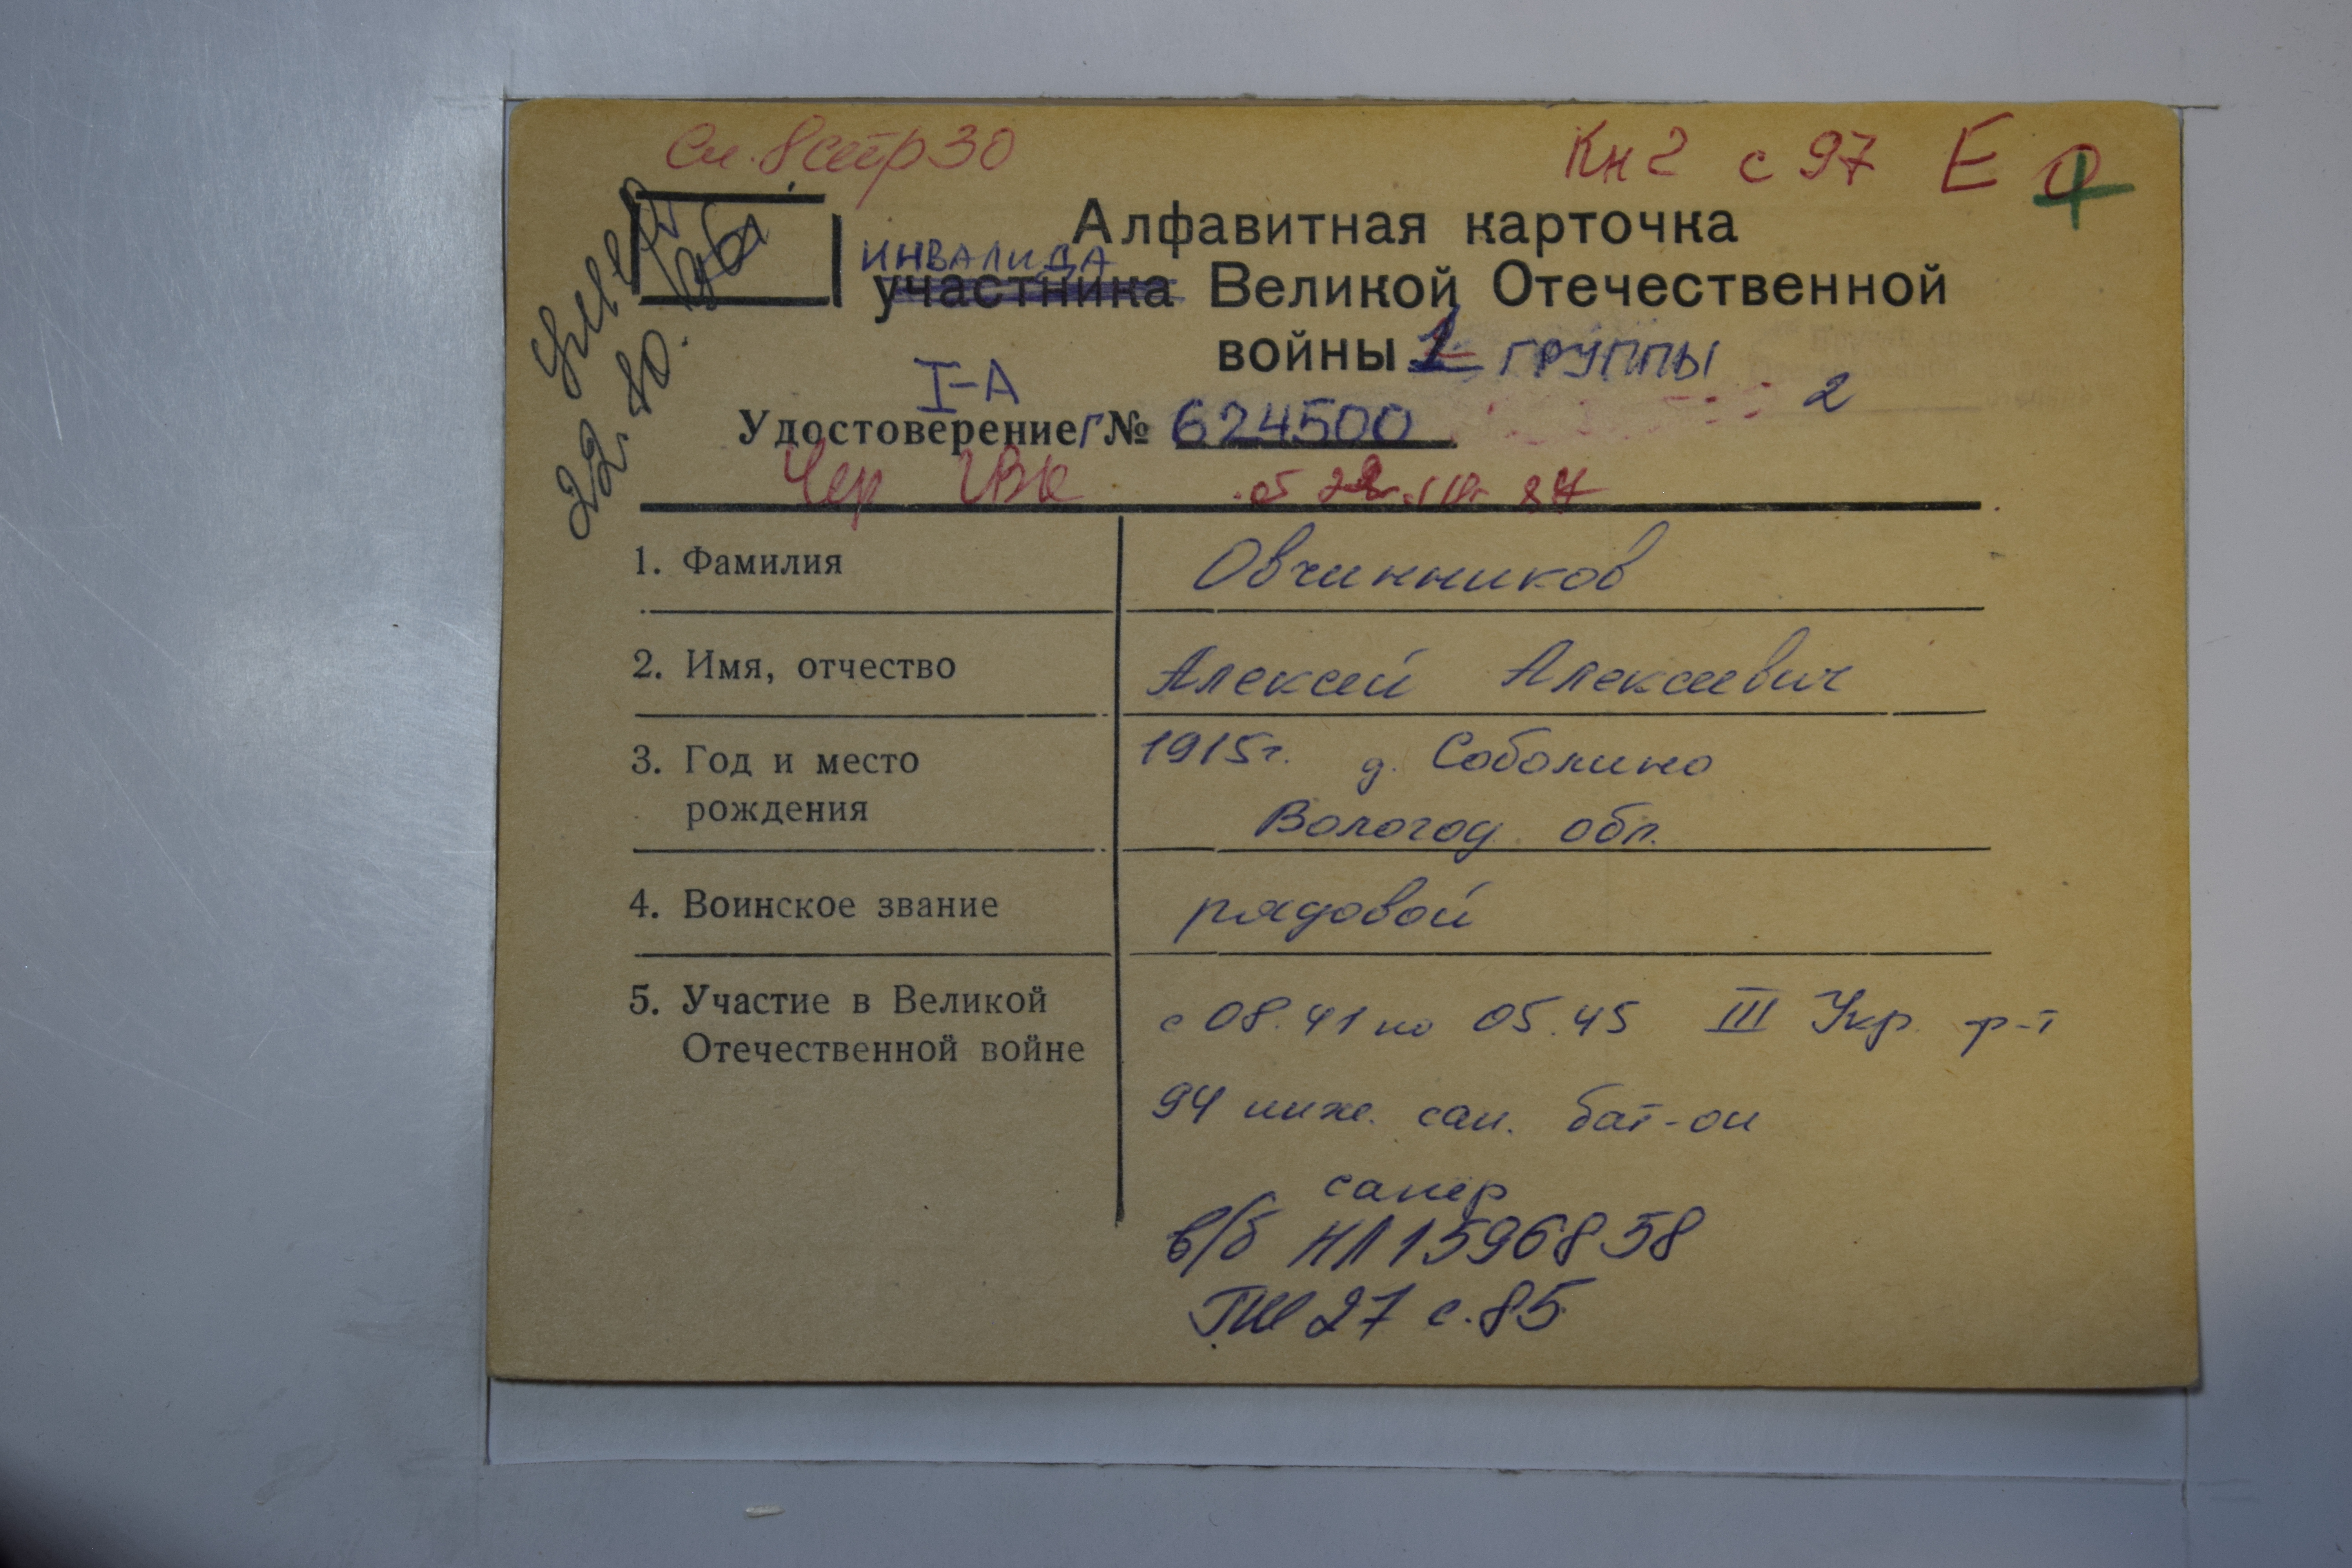 См. 8 стр 30
Кн 2 с 97 Е
умер
22. 10. 96
Алфавитная карточка
ИНВАЛИДА
участника Великой Отечественной
войны 1 ГРУППЫ
I-А
2
Удостоверение Г № 624500
Чер ГВК от
1. Фамилия Овчинников
2. Имя, отчество Алексей Алексеевич
3. Год и место 1915г. д. Соболино
рождения Вологод. обл.
4. Воинское звание рядовой
5. Участие в Великой с 08.41 по 05.45 III Укр. ф-т
Отечественной войне
94 инж. сап. бат-он
сапер
в/б НЛ 1596858
с. 85